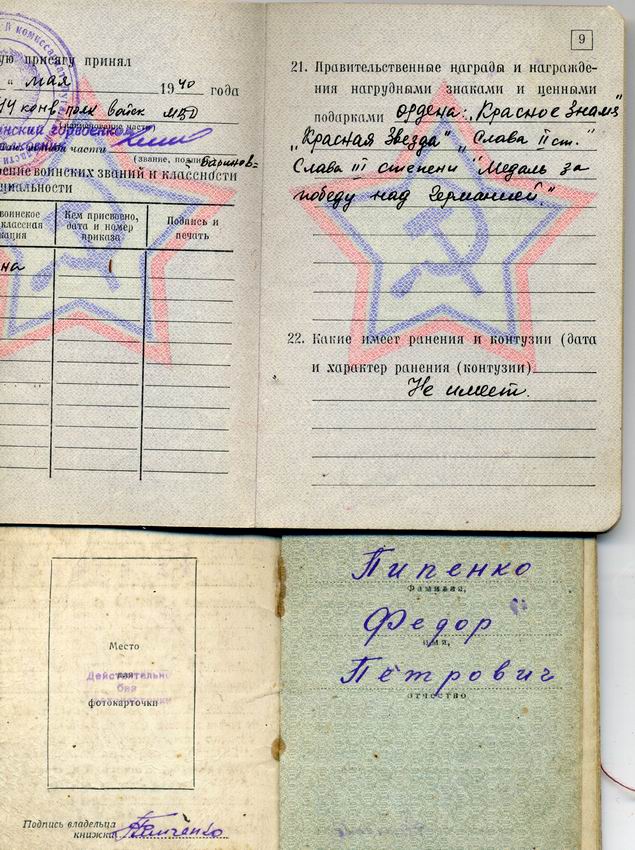 ую присягу принял
" мая 1940 года
14 конв. полк войск
(наименование части)
(звание, подпись)
Баринов
воинских званий и классности
Кем присвоено,
дата и номер
приказа
Подпись и
печать
9
21. Правительственные награды и награжде-
ния нагрудными знаками и ценными
подарками ордена: „Красное Знамя"
„Красная Звезда" „Слава II ст."
Слава III степени "Медаль за
победу над Германией."
22. Какие имеет ранения и контузии (дата
и характер ранения (контузии)
Не имеет.
Место
для
фотокарточки
Действительно
без
Подпись владельца
книжки
Пипенко
Фамилия,
Федор
имя,
Петрович
отчество